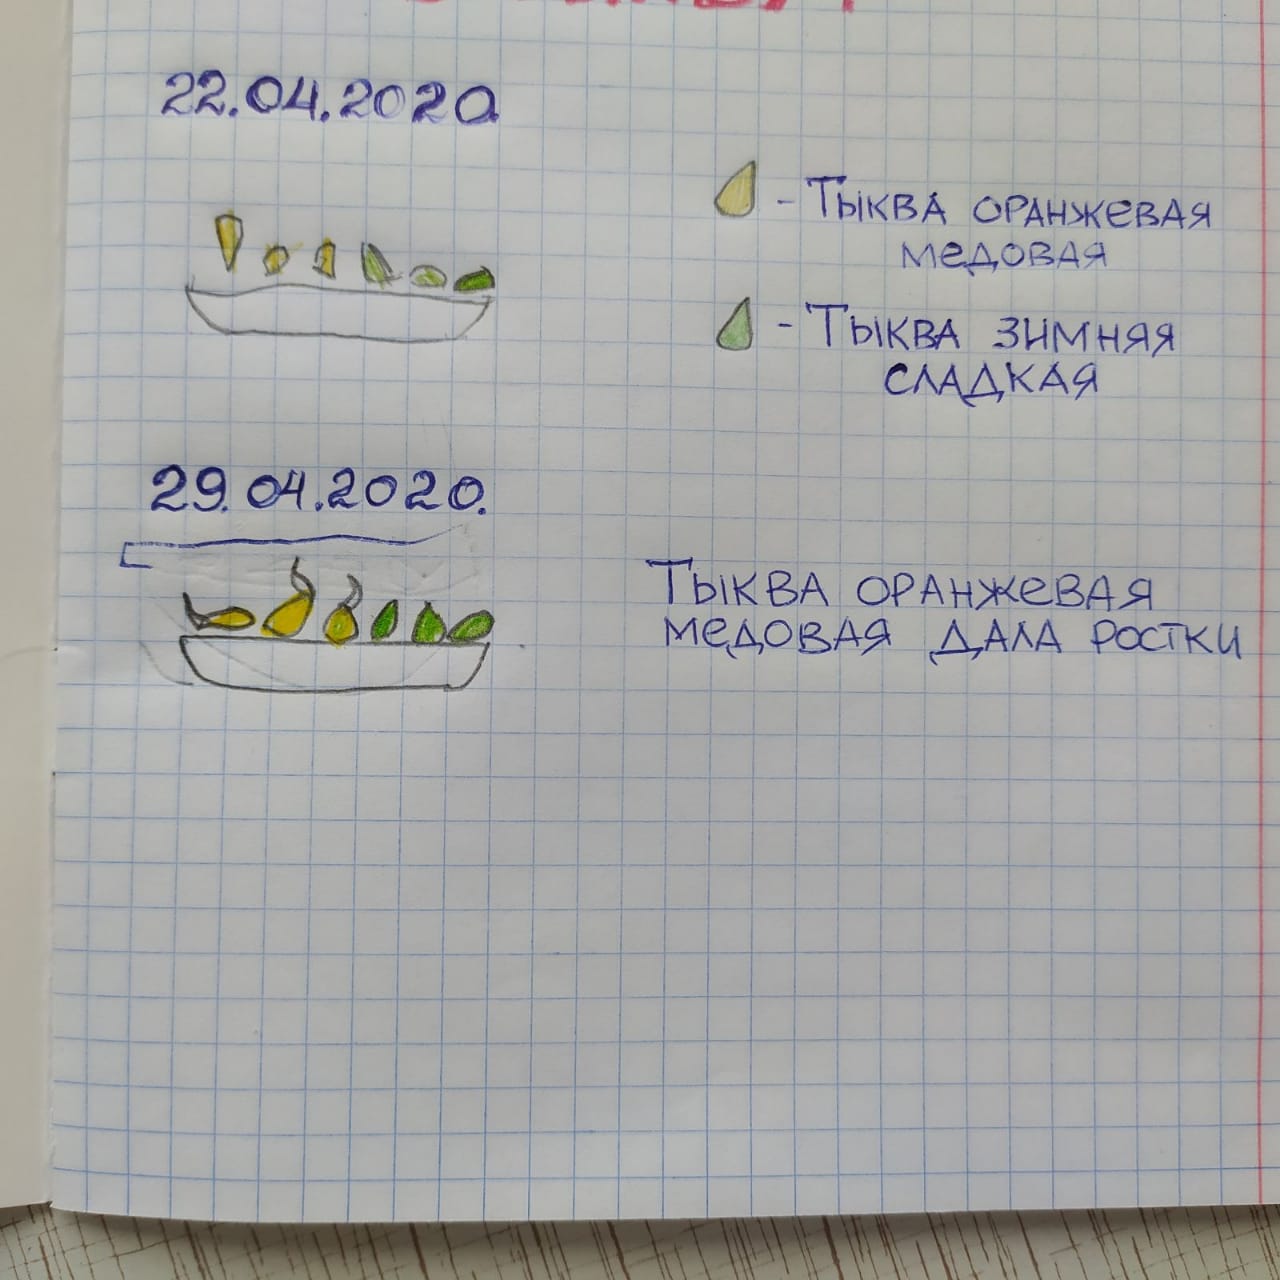 22.04.2020
- Тыква оранжевая
медовая
- Тыква зимняя
сладкая
29.04.2020.
Тыква оранжевая
медовая дала ростки